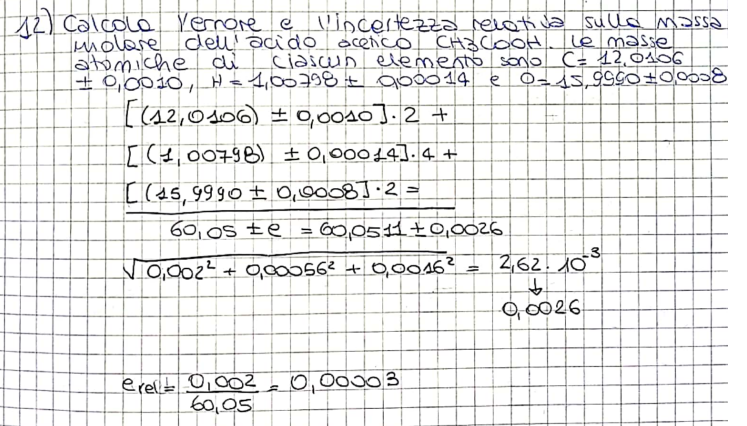 12) Calcola l'errore e l'incertezza relativa sulla massa
molare dell'acido acetico CH3COOH. Le masse
atomiche di ciascun elemento sono C= 12,0106
± 0,0010, H= 1,00798 ± 0,00014 e O= 15,9990 ± 0,0008
[(12,0106) ± 0,0010] · 2 +
[(1,00798) ± 0,00014] · 4 +
[(15,9990 ± 0,0008] · 2 =
60,05 ± e = 60,0511 ± 0,0026
√0,002² + 0,00056² + 0,0016² = 2,62 · 10⁻³
↓
0,0026
erel = 0,002 / 60,05 = 0,00003